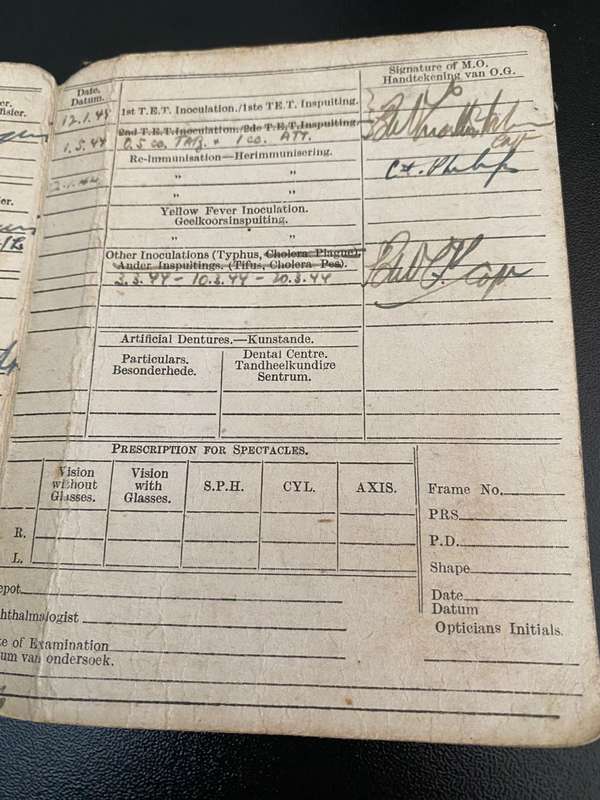 er.
fisier.
er.
Date.
Datum.
Signature of M.O.
Handtekening van O.G.
12.1.44
1st T.E.T. Inoculation./1ste T.E.T. Inspuiting.
2nd T.E.T. Inoculation./2de T.E.T. Inspuiting.
1.5.44 0.5 cc. TAF2 + 1 cc. ATT.
Re-immunisation—Herimmunisering.
" "
Yellow Fever Inoculation.
Geelkoorsinspuiting.
" "
Other Inoculations (Typhus, Cholera Plague).
Ander Inspuitings. (Tifus, Cholera Pes).
3.3.44 - 10.3.44 - 20.3.44
Artificial Dentures.—Kunstande.
Particulars.
Besonderhede.
Dental Centre.
Tandheelkundige
Sentrum.
PRESCRIPTION FOR SPECTACLES.
Vision
without
Glasses.
Vision
with
Glasses.
S.P.H.
CYL.
AXIS.
R.
L.
Frame No.
PRS
P.D.
Shape
Date
Datum
Opticians Initials.
epot
hthalmologist
te of Examination
um van ondersoek.